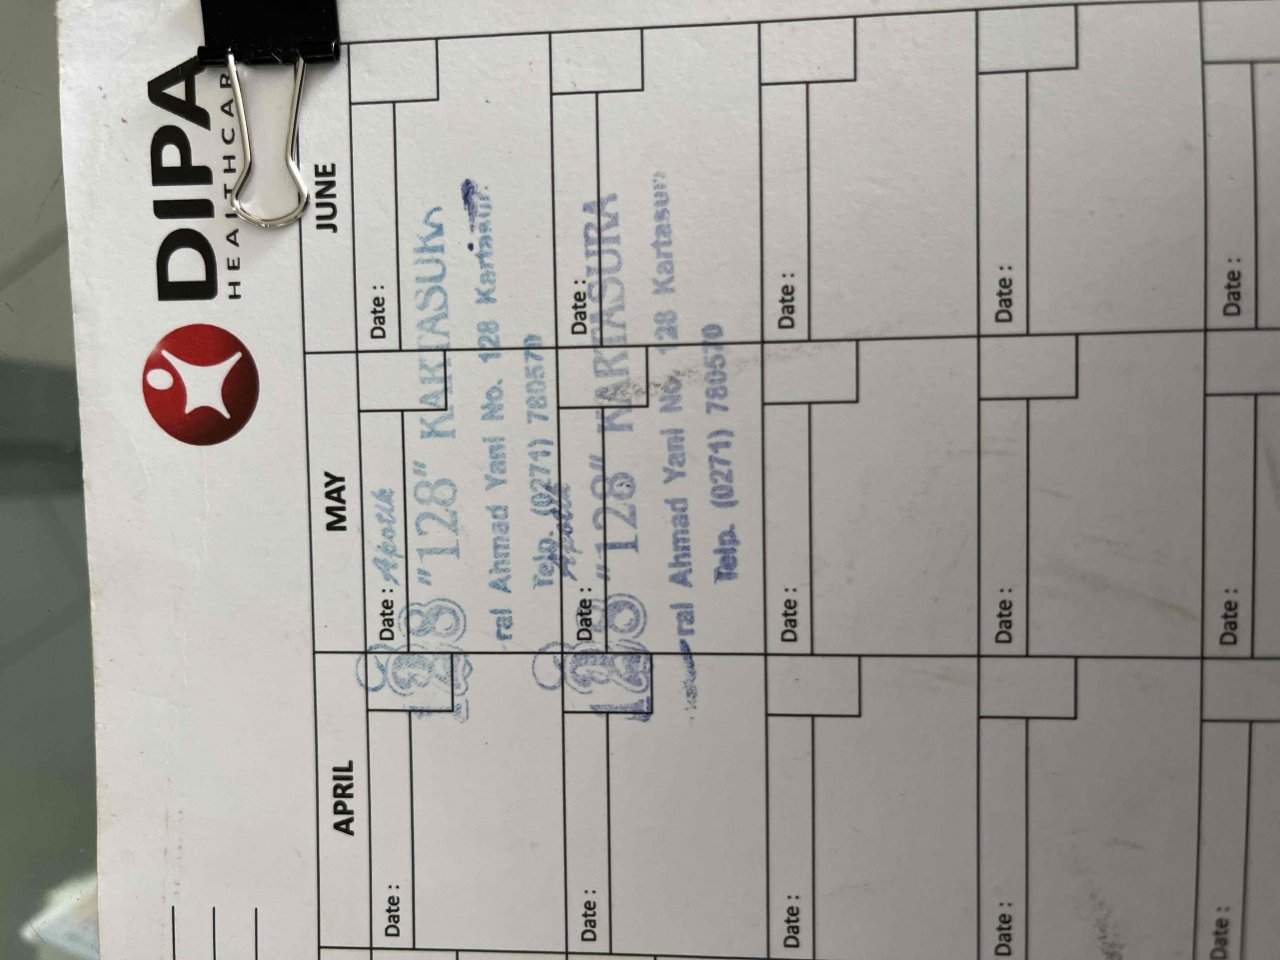 DIPA
HEALTHCAR
APRIL MAY JUNE
Date : Date : Date :
Apotek
"128" KARTASURA
ral Ahmad Yani No. 128 Kartasur
Telp. (0271) 780570
Date : Date : Date :
Apotek
128 "128" KARTASURA
ral Ahmad Yani No. 128 Kartasur
Telp. (0271) 780570
Date : Date : Date :
Date : Date : Date :
Date : Date : Date :